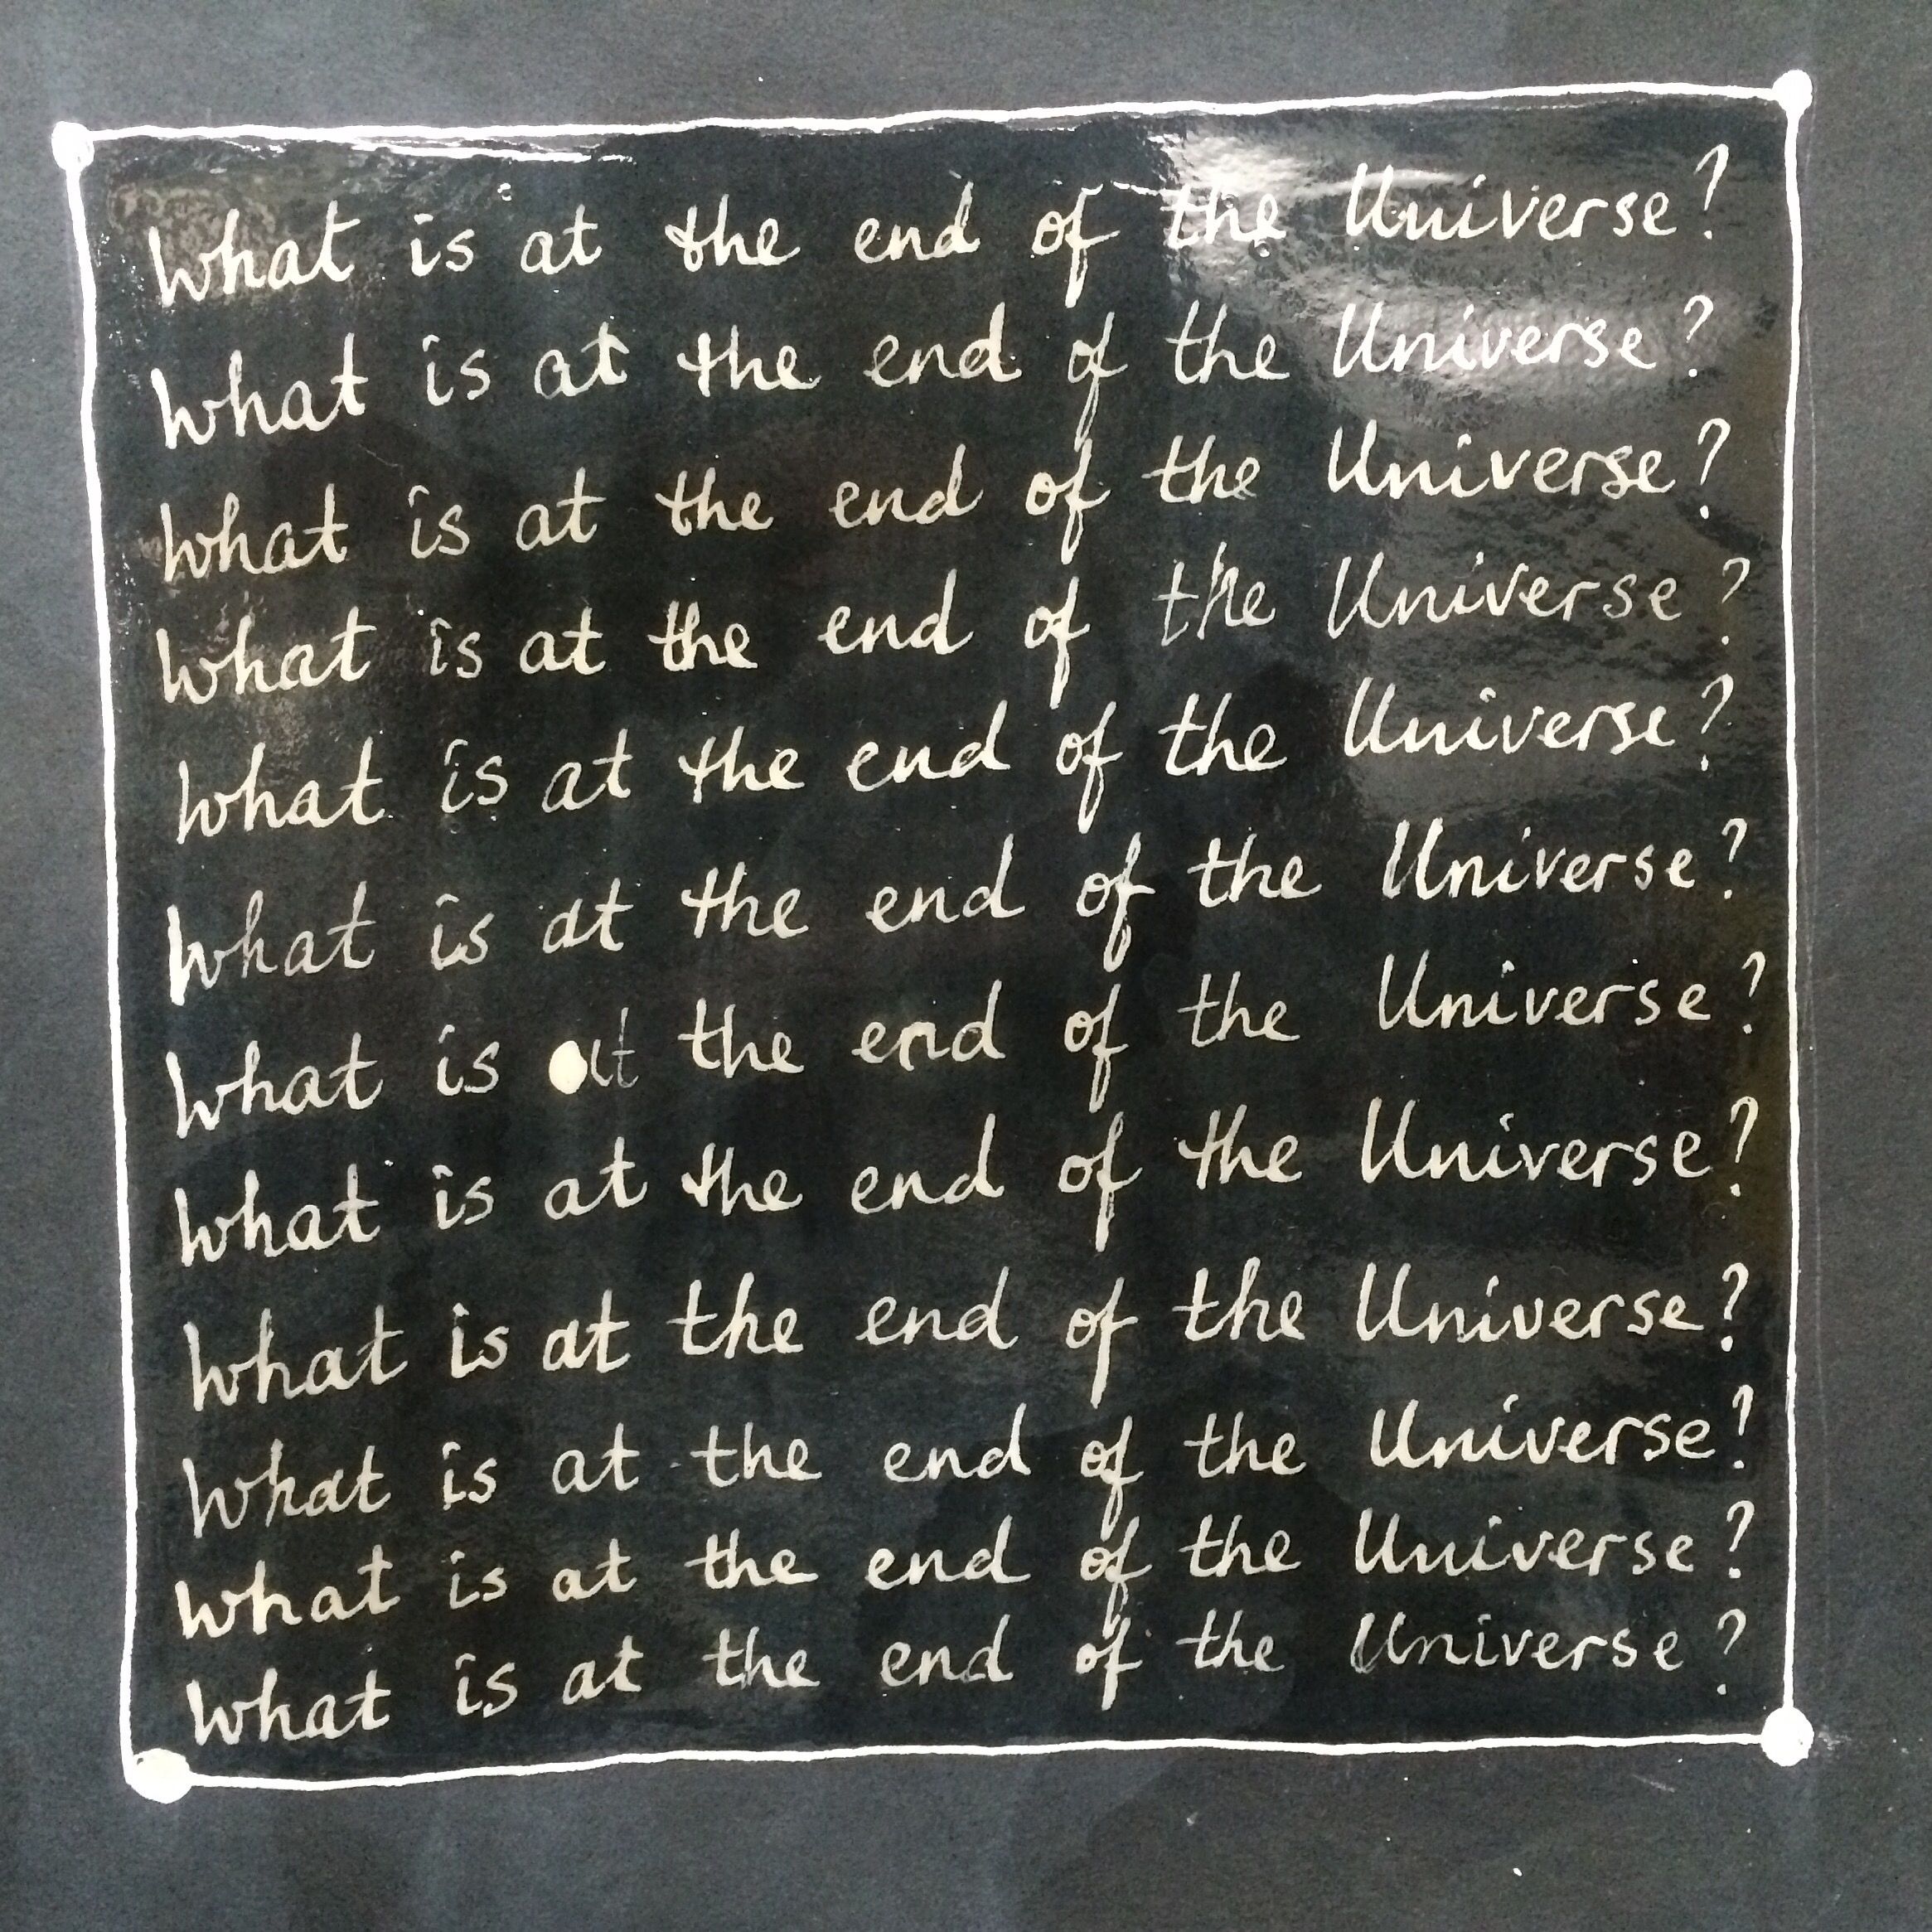 What is at the end of the Universe?
What is at the end of the Universe?
What is at the end of the Universe?
What is at the end of the Universe?
What is at the end of the Universe?
What is at the end of the Universe?
What is at the end of the Universe?
What is at the end of the Universe?
What is at the end of the Universe?
What is at the end of the Universe?
What is at the end of the Universe?
What is at the end of the Universe?